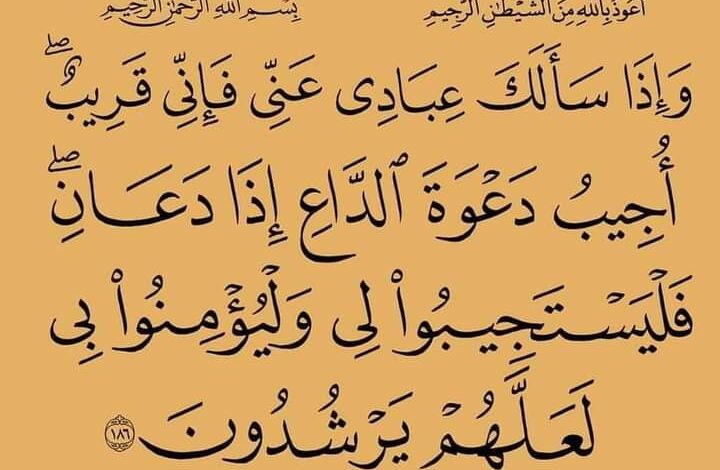 أَعُوذُ بِاللَّهِ مِنَ الشَّيْطَٰنِ الرَّجِيمِ بِسْمِ اللَّهِ الرَّحْمَٰنِ الرَّحِيمِ
وَإِذَا سَأَلَكَ عِبَادِى عَنِّى فَإِنِّى قَرِيبٌ ۖ
أُجِيبُ دَعْوَةَ ٱلدَّاعِ إِذَا دَعَانِ ۖ
فَلْيَسْتَجِيبُوا۟ لِى وَلْيُؤْمِنُوا۟ بِى
لَعَلَّهُمْ يَرْشُدُونَ ١٨٦